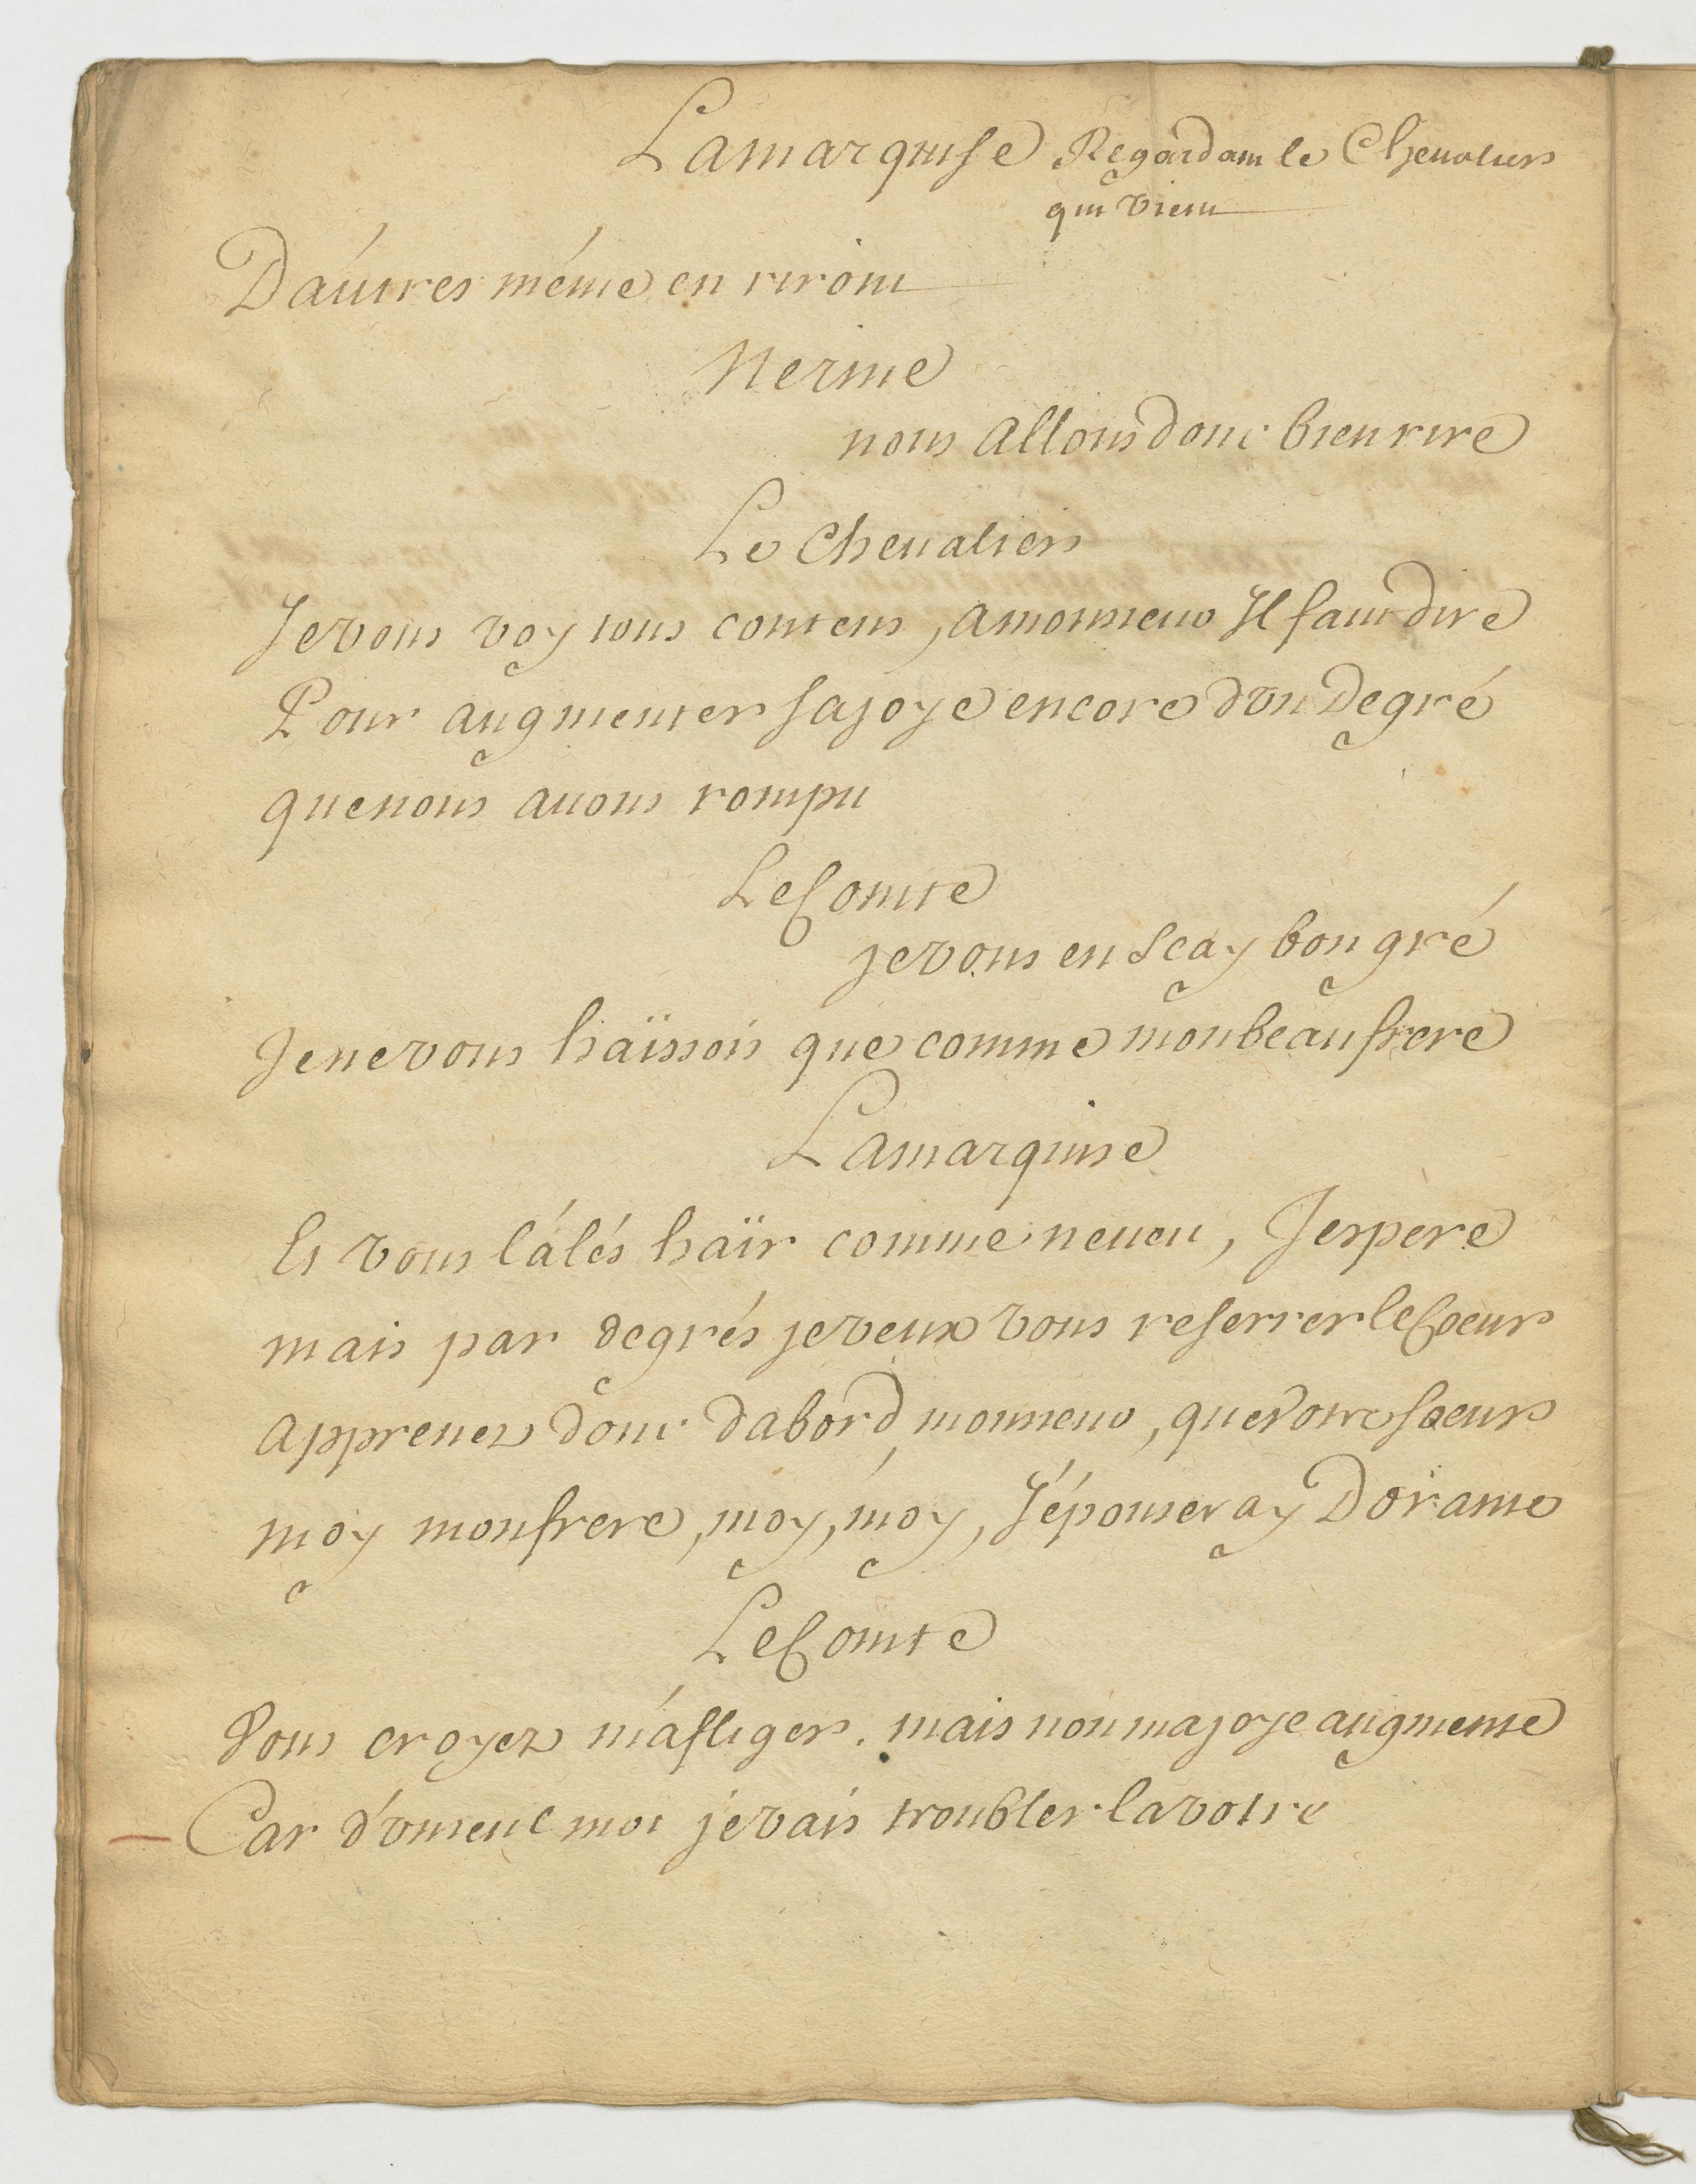 La marquise Regardant le Chevalier
qui vient
D'autres méme en riront
Nerine
nous allons donc bien rire
Le Chevalier
Je vous voy tous contens, a monneveu Il faut dire
Pour augmenter sa joye encore d'un degré
que nous auons rompu
Le Comte
je vous en sçay bon gré
Je ne vous haïssois que comme mon beaufrere
La marquise
Et vous l'alés haïr comme neueu, Jespere
mais par degrés je veux vous reserrer le Coeur
apprenez donc dabord, que votre soeur
moy mon frere, moy, moy, J'épouseray Dorante
Le Comte
Vous croyez m'afliger. mais non ma joye augmente
Car d'un seul mot je vais troubler la votre